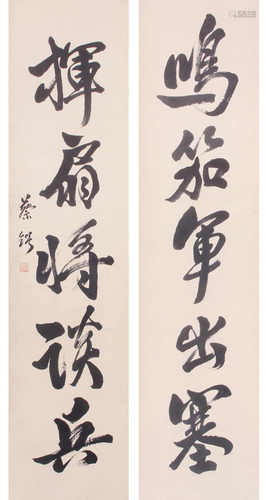 鳴笳軍出塞
揮扇將談兵
蔡鍔